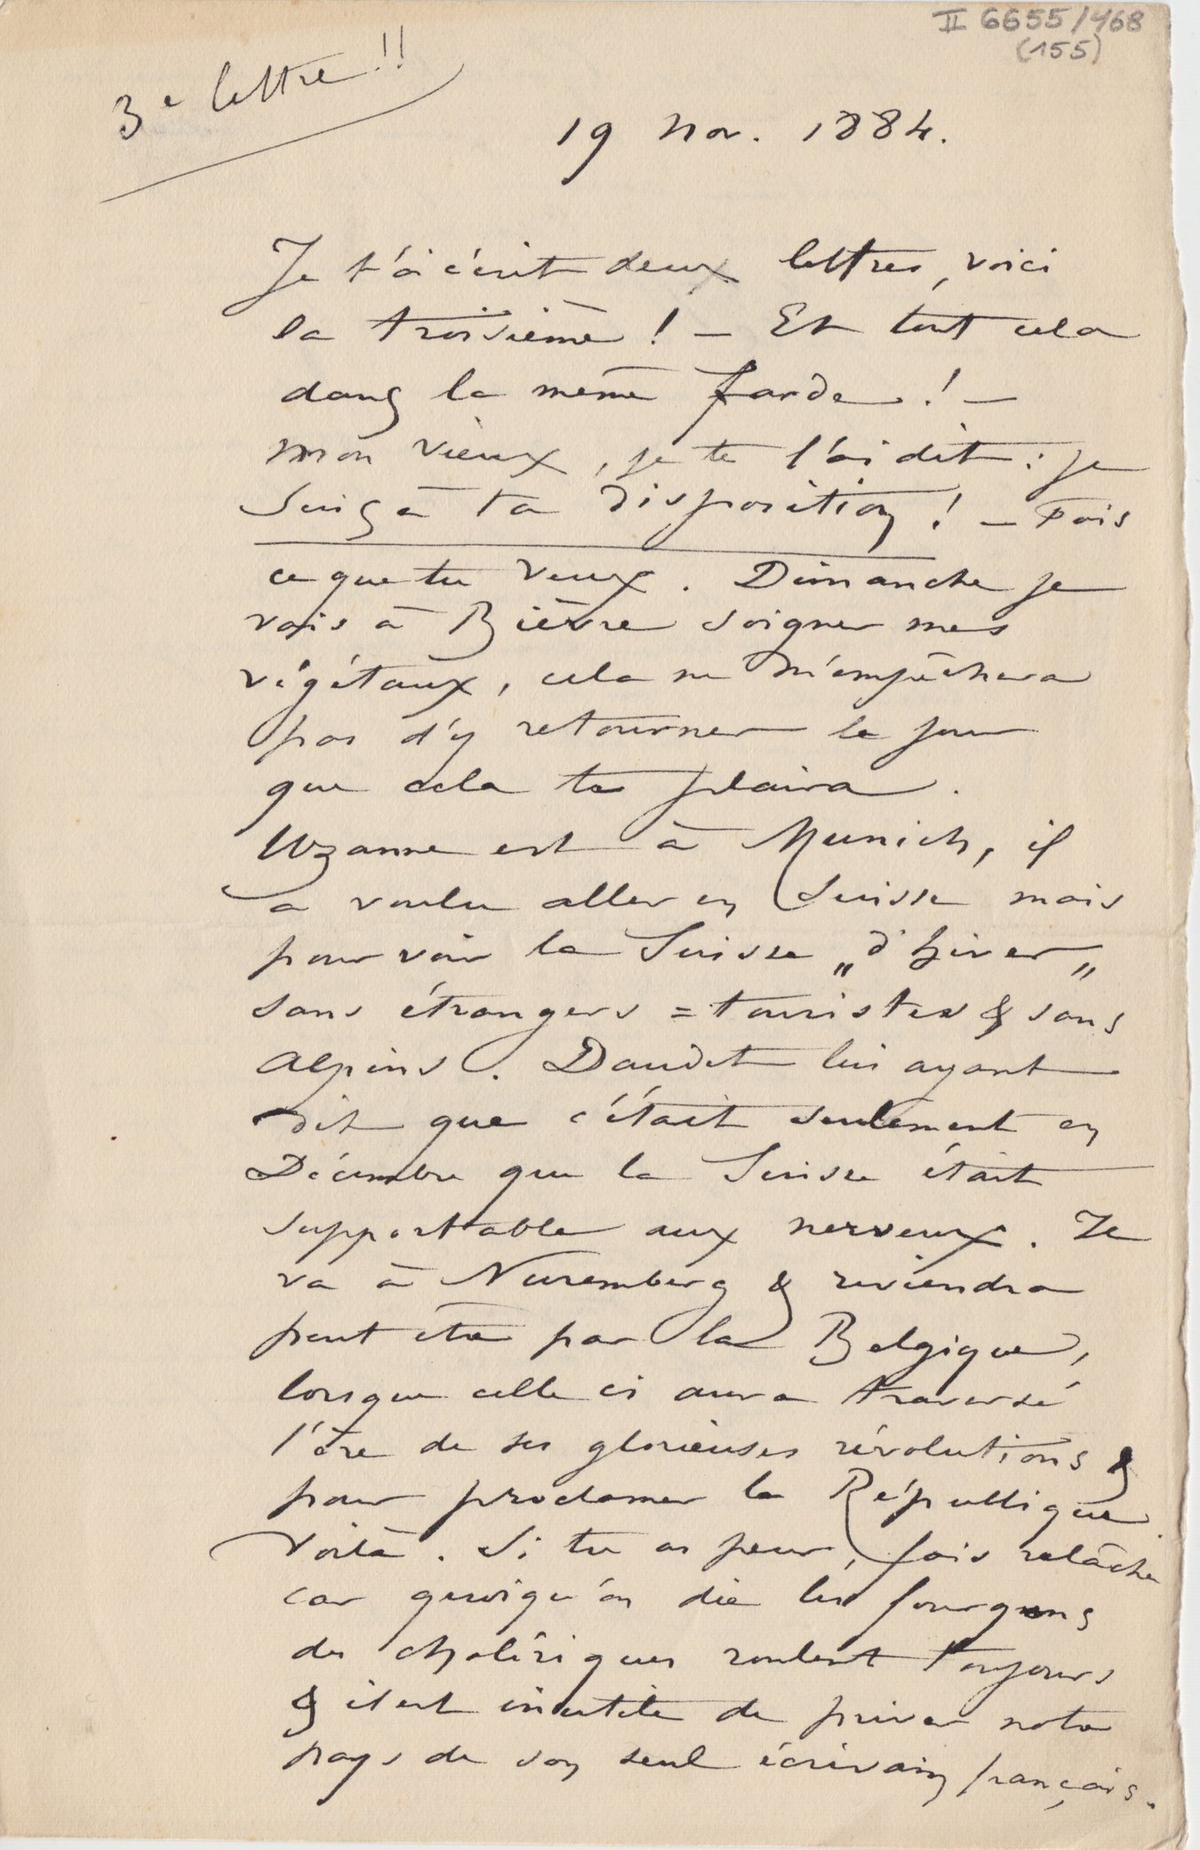 II 6655/468
(155)
3e lettre!!
19 Nov. 1884.
Je t'ai écrit deux lettres, voici
la troisième ! – Et tout cela
dans la même farde ! –
mon vieux, je te l'ai dit : je
suis à ta disposition ! – Fais
ce que tu veux. Dimanche je
vais à Bièvre soigner mes
végétaux, cela ne m'empêchera
pas d'y retourner le jour
que cela te plaira.
Uzanne est à Munich, il
a voulu aller en Suisse mais
pour voir la Suisse „d'hiver„
sans étrangers = touristes & sans
Alpins. Daudet lui ayant
dit que c'était seulement en
Décembre que la Suisse était
supportable aux nerveux. Il
va à Nuremberg & reviendra
peut etre par la Belgique,
lorsque celle ci aura traversé
l'ère de ses glorieuses révolutions &
pour proclamer la République
Voilà. Si tu as peur, fais relâche
car quoiqu'on die les fourgons
des cholériques roulent toujours
& il est inutile de priver notre
pays de son seul écrivain français.